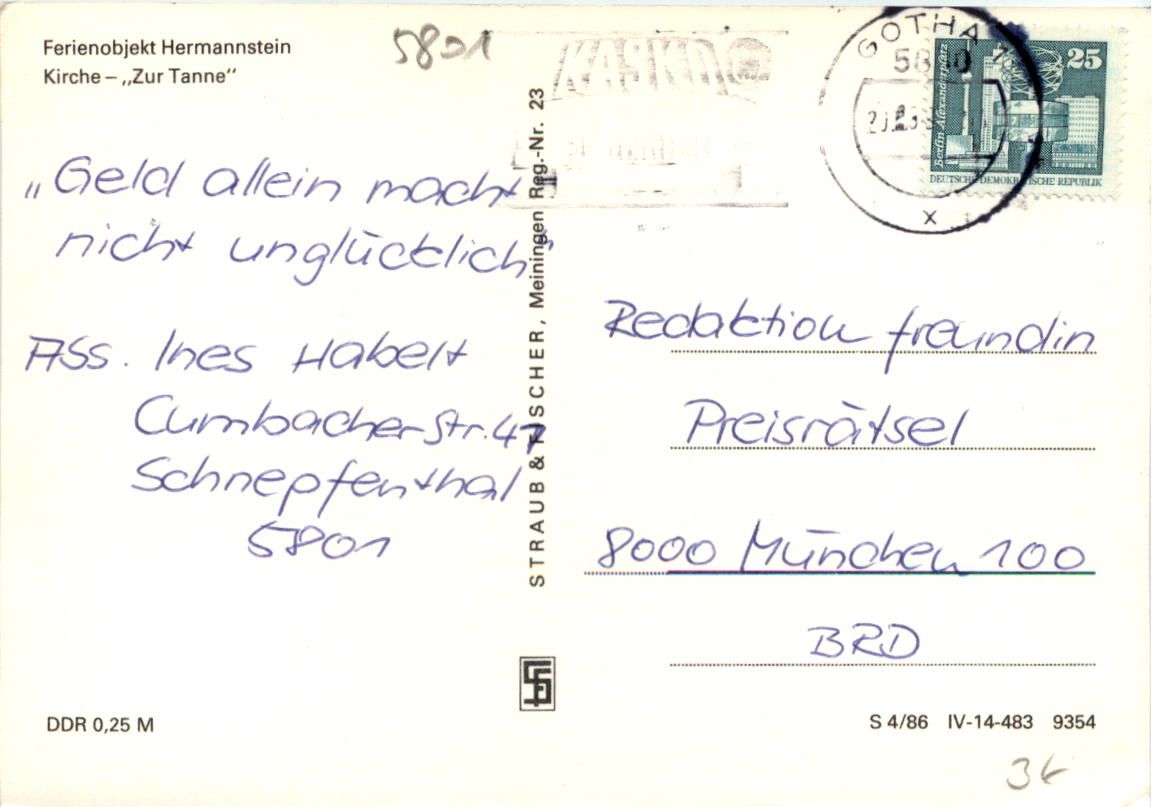 Ferienobjekt Hermannstein
Kirche – „Zur Tanne“
5801
GOTHA 1
58
25
Berlin Alexanderplatz
DEUTSCHE DEMOKRATISCHE REPUBLIK
x
„Geld allein macht
nicht unglücklich“
Ass. Ines Habelt
Cumbacher Str. 47
Schnepfenthal
5801
STRAUB & FISCHER, Meiningen Reg.-Nr. 23
Redaktion freundin
Preisrätsel
8000 München 100
BRD
DDR 0,25 M
S 4/86 IV-14-483 9354